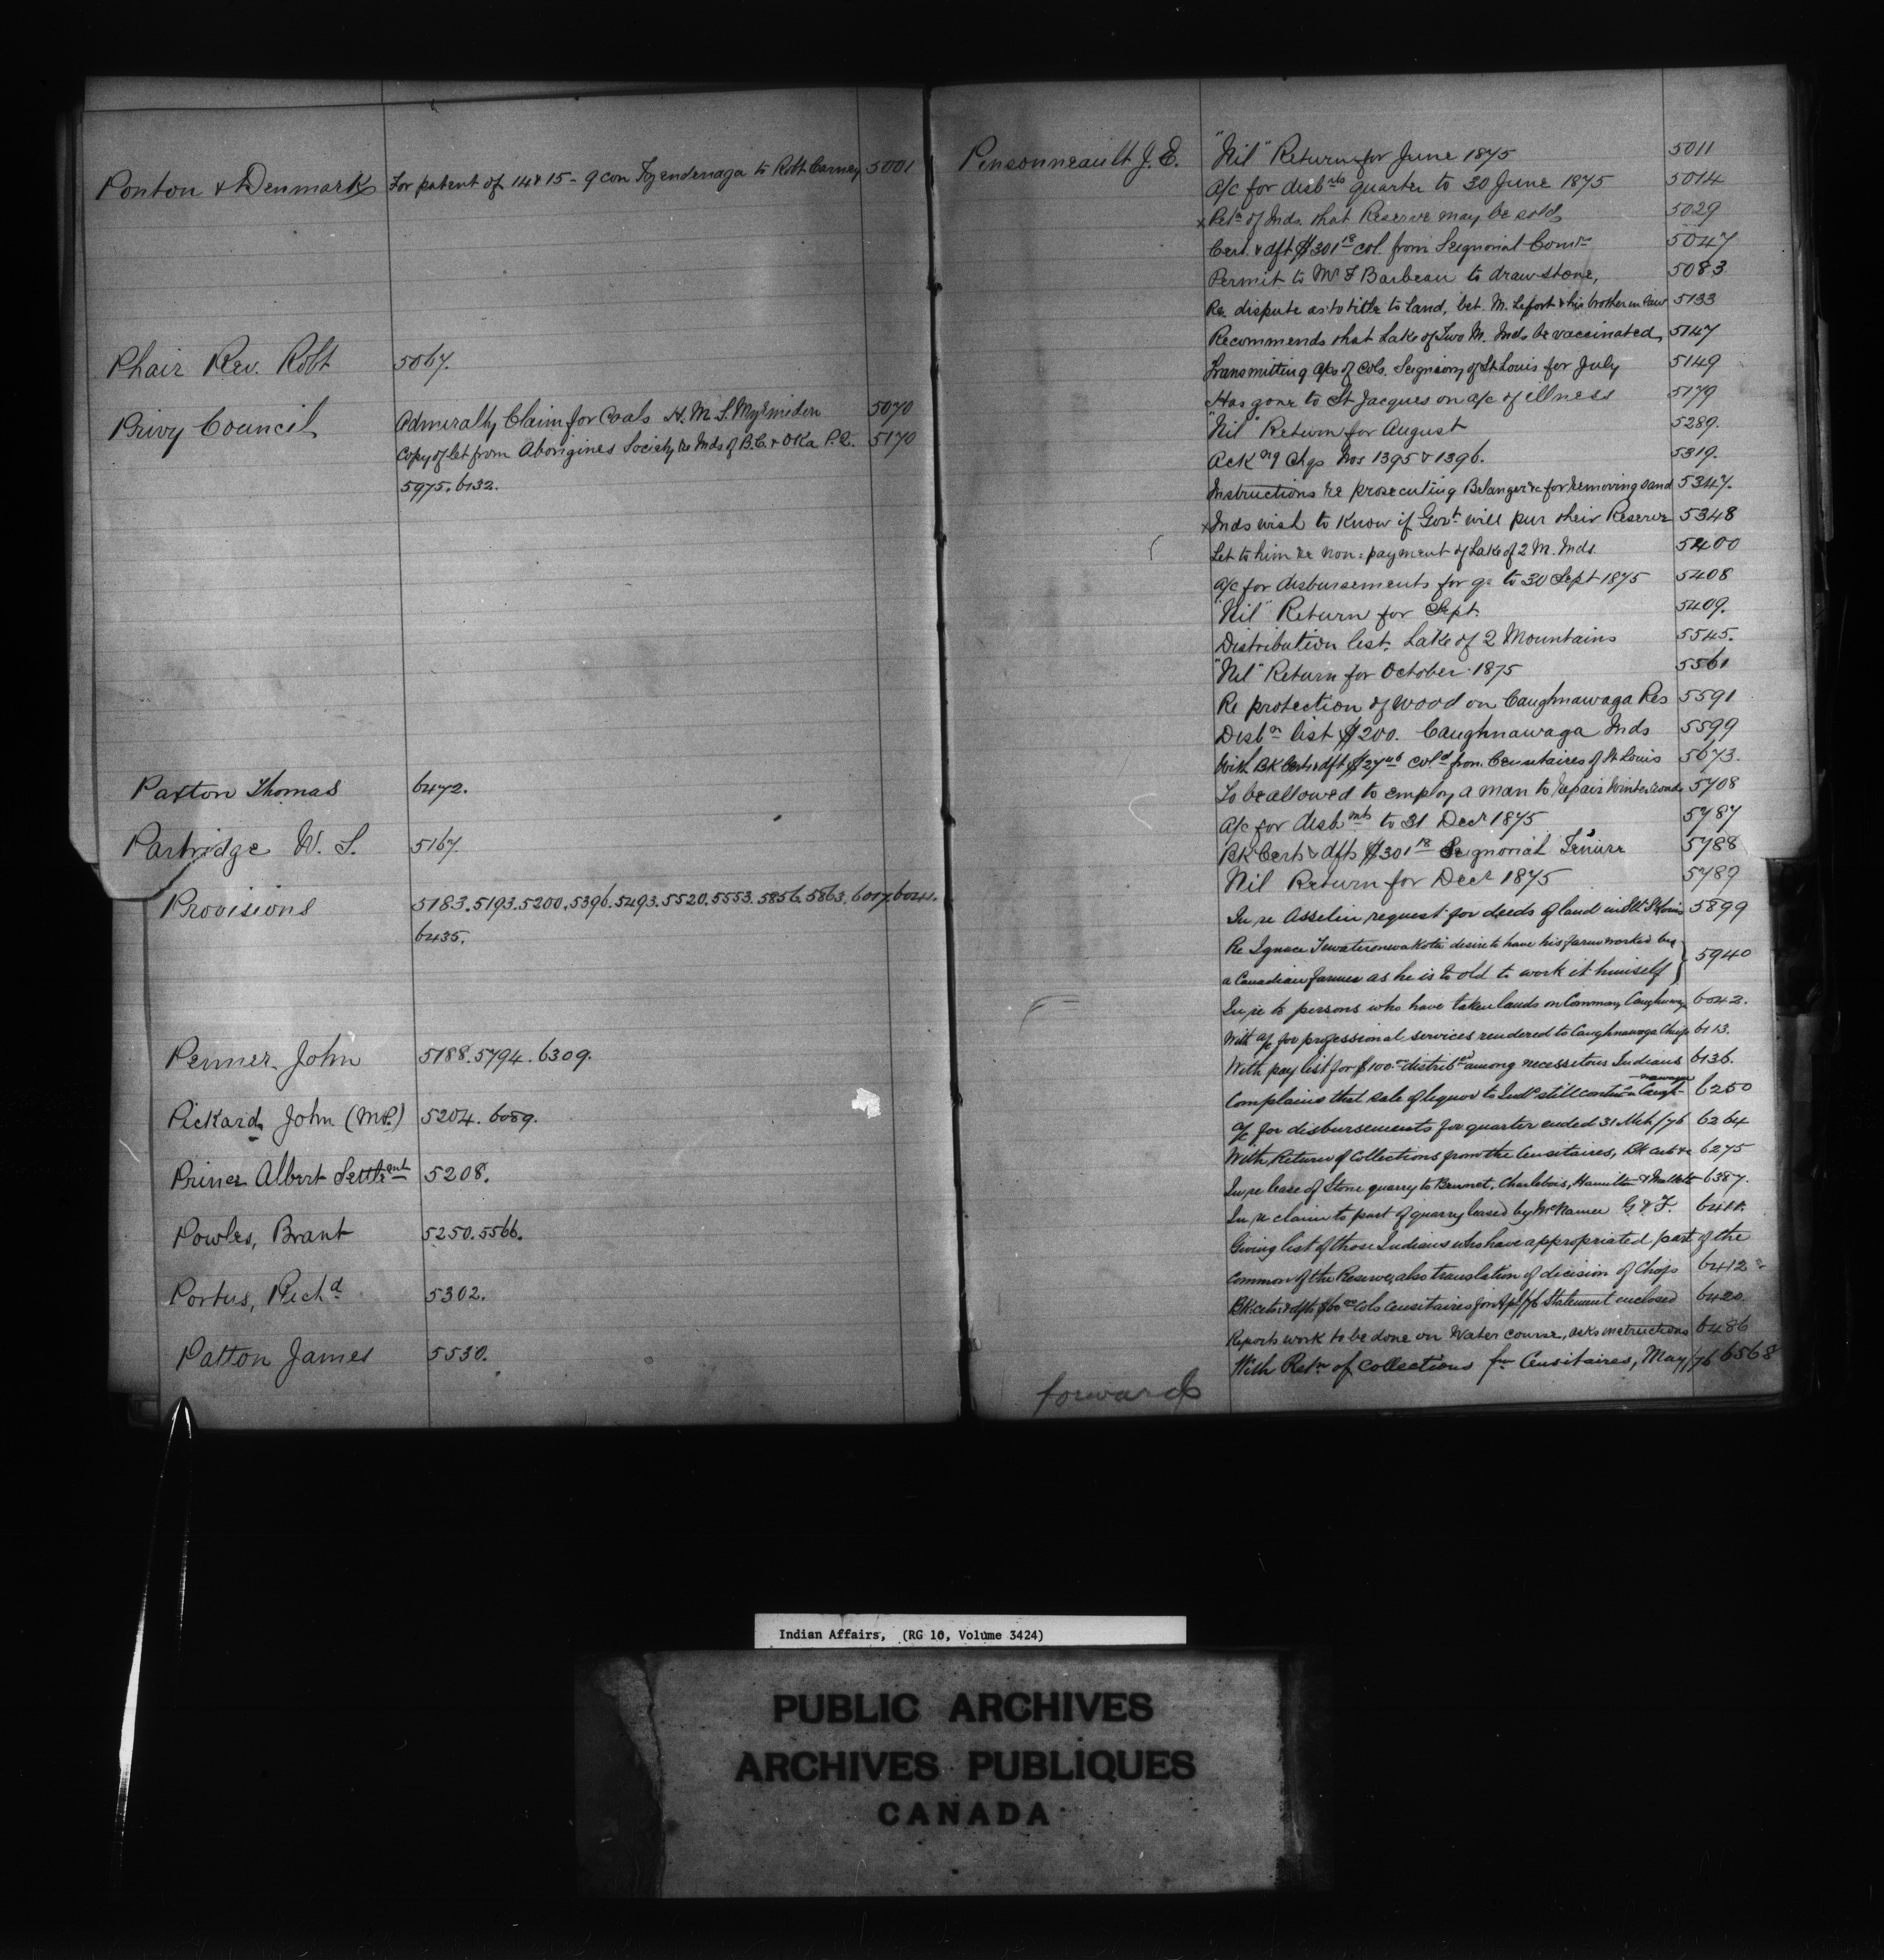 Ponton & Denmark For patent of 14 & 15 - 9 con Tyendenaga to Robt Carney 5001
Phair Rev. Robt 5067.
Privy Council Admiralty Claim for Coals H.M.S. Myrmidon 5070
Copy of let from Aborigines Society re Inds of B.C. & Oka P.Q. 5170
5975. 6132.
Paxton Thomas 6472.
Partridge W. S. 5167.
Provisions 5183. 5193. 5200. 5396. 5493. 5520. 5553. 5856. 5863. 6007. 6041.
6435.
Penner John 5188. 5794. 6309.
Pickard, John (MP.) 5204. 6089.
Prince Albert Settlemnt 5208.
Powles, Brant 5250. 5566.
Portus, Richd 5302.
Patton James 5530.
Pensonneault J. E. "Nil" Return for June 1875 5011
a/c for disbnts quarter to 30 June 1875 5014
x Petn of Inds. that Reserve may be sold 5029
Cert. & dft $301 18 col. from Seignorial Comrs 5047
Permit to Mr F Barbeau to draw stone, 5083
Re. dispute as to title to land, bet. M. Lefort & his brother in law 5133
Recommends that Lake of Two M. Inds be vaccinated, 5147
Transmitting a/cs of Cols. Seigniory of St Louis for July 5149
Has gone to St Jacques on a/c of illness 5179
"Nil" Return for August 5289.
Ackng Chqs Nos 1395 & 1396. 5319.
Instructions re prosecuting Belanger &c for removing sand 5347.
x Inds wish to know if Govt will pur their Reserve 5348
Let to him re non-payment of Lake of 2 M. Inds. 5400
a/c for disbursements for qr to 30 Sept 1875 5408
"Nil" Return for Sept. 5409.
Distribution list. Lake of 2 Mountains 5545.
"Nil" Return for October 1875 5561
Re protection of wood on Caughnawaga Res 5591
Disbn list $200. Caughnawaga Inds 5599
With BK Certs & dft $27 cold from Censitaires of St Louis 5673.
To be allowed to employ a man to repair Winter roads 5708
a/c for disbmts to 31 Decr 1875 5787
BK Certs & dfts $301 18 Seignorial Tenure 5788
Nil Return for Decr 1875 5789
In re Asselin request for deeds of land in St Louis 5899
Re Ignace desire to have his farm worked by
a Canadian farmer as he is to old to work it himself } 5940
In re to persons who have taken lands on Common, 6042.
With a/c for professional services rendered to Caughnawaga Chiefs 6113.
With pay list for $100 distribted among necessitous Indians 6136.
Complains that sale of liquor to Inds still contin Caughnawaga 6250
a/c for disbursements for quarter ended 31 Mch/76 6264
With Return of Collections from the Censitaires, BK cert &c 6275
In re lease of Stone quarry to Brunet, Charlebois, Hamilton & 6387.
In re claim to part of quarry leased by McNamee G & F. 6411.
Giving list of those Indians who have appropriated part of the
Common of the Reserve, also translation of decision of Chiefs 6412
BK certs & dfts $60 cols Censitaires for Apl/76 Statement enclosed 6420.
Reports work to be done on Water course, asks instructions 6486
With Retn of Collections fm Censitaires, May/76 6568
forward
Indian Affairs, (RG 10, Volume 3424)
PUBLIC ARCHIVES
ARCHIVES PUBLIQUES
CANADA